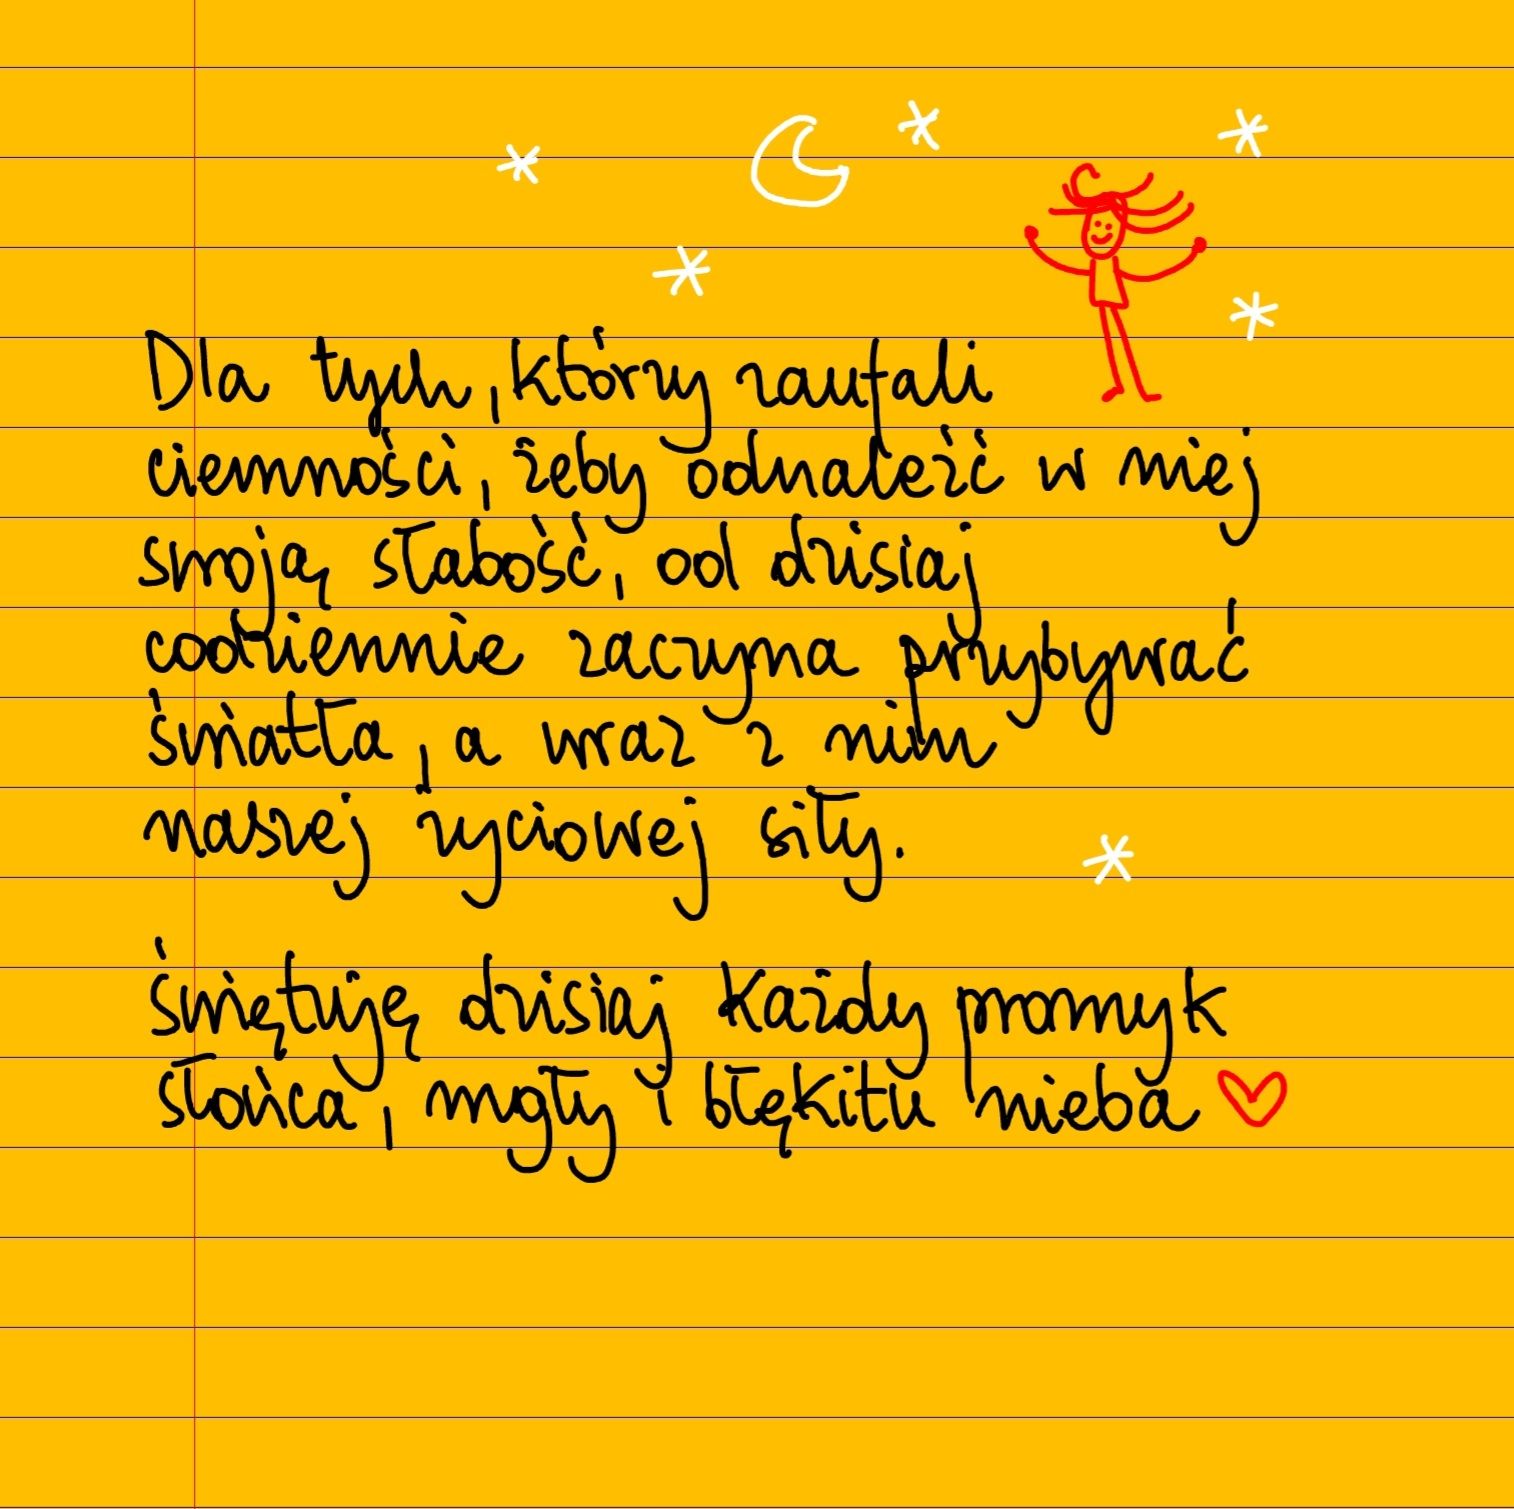 Dla tych, którzy zaufali
ciemności, żeby odnaleźć w niej
swoją słabość, od dzisiaj
codziennie zaczyna przybywać
światła, a wraz z nim
naszej życiowej siły.
świętuję dzisiaj każdy promyk
słońca, mgły i błękitu nieba